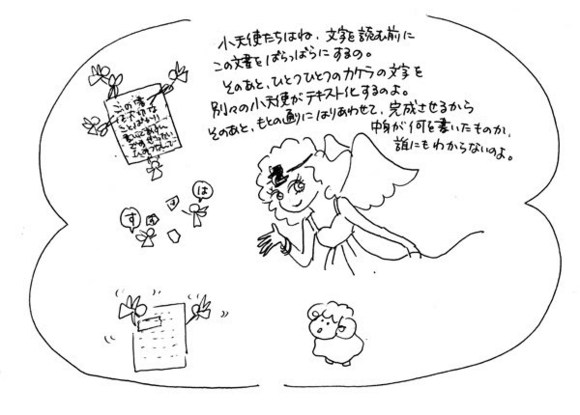 小天使たちはね、文字を読む前に
この文書をばらっばらにするの。
そのあと、ひとつひとつのカケラの文字を
別々の小天使がテキスト化するのよ。
そのあと、もとの通りにはりあわせて、完成させるから
中身が何を書いたものか、
誰にもわからないのよ。
は
す